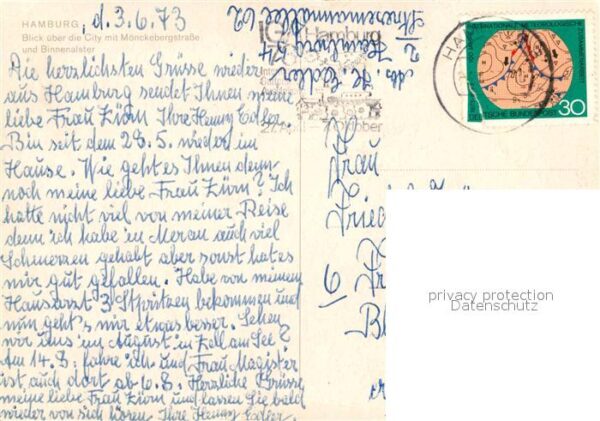 HAMBURG, d. 3.6.73
Blick über die City mit Mönckebergstraße
und Binnenalster
Die herzlichsten Grüsse wieder
aus Hamburg sendet Ihnen meine
liebe Frau Zürn Ihre Henny Edler.
Bin seit dem 28.5. wieder im
Hause. Wie geht es Ihnen denn
noch meine liebe Frau Zürn? Ich
hatte nicht viel von meiner Reise
denn ich habe in Meran auch viel
Schmerzen gehabt aber sonst hat es
mir gut gefallen. Habe von meinem
Hausarzt 3 Spritzen bekommen und
nun geht's mir etwas besser. Sehen
wir uns im August in Zell am See?
Am 14.8. fahre ich und Frau Magister
ist auch dort ab 6.8. Herzliche Grüsse
meine liebe Frau Zürn und lassen Sie bald
wieder von sich hören. Ihre Henny Edler.
Abs. H. Edler
2 Hamburg 54
62
Hamburg
27. April – Oktober
HAM
INTERNATIONALE METEOROLOGISCHE
ZUSAMMENARBEIT
100 JAHRE
DEUTSCHE BUNDESPOST
30
Frau
6
privacy protection
Datenschutz